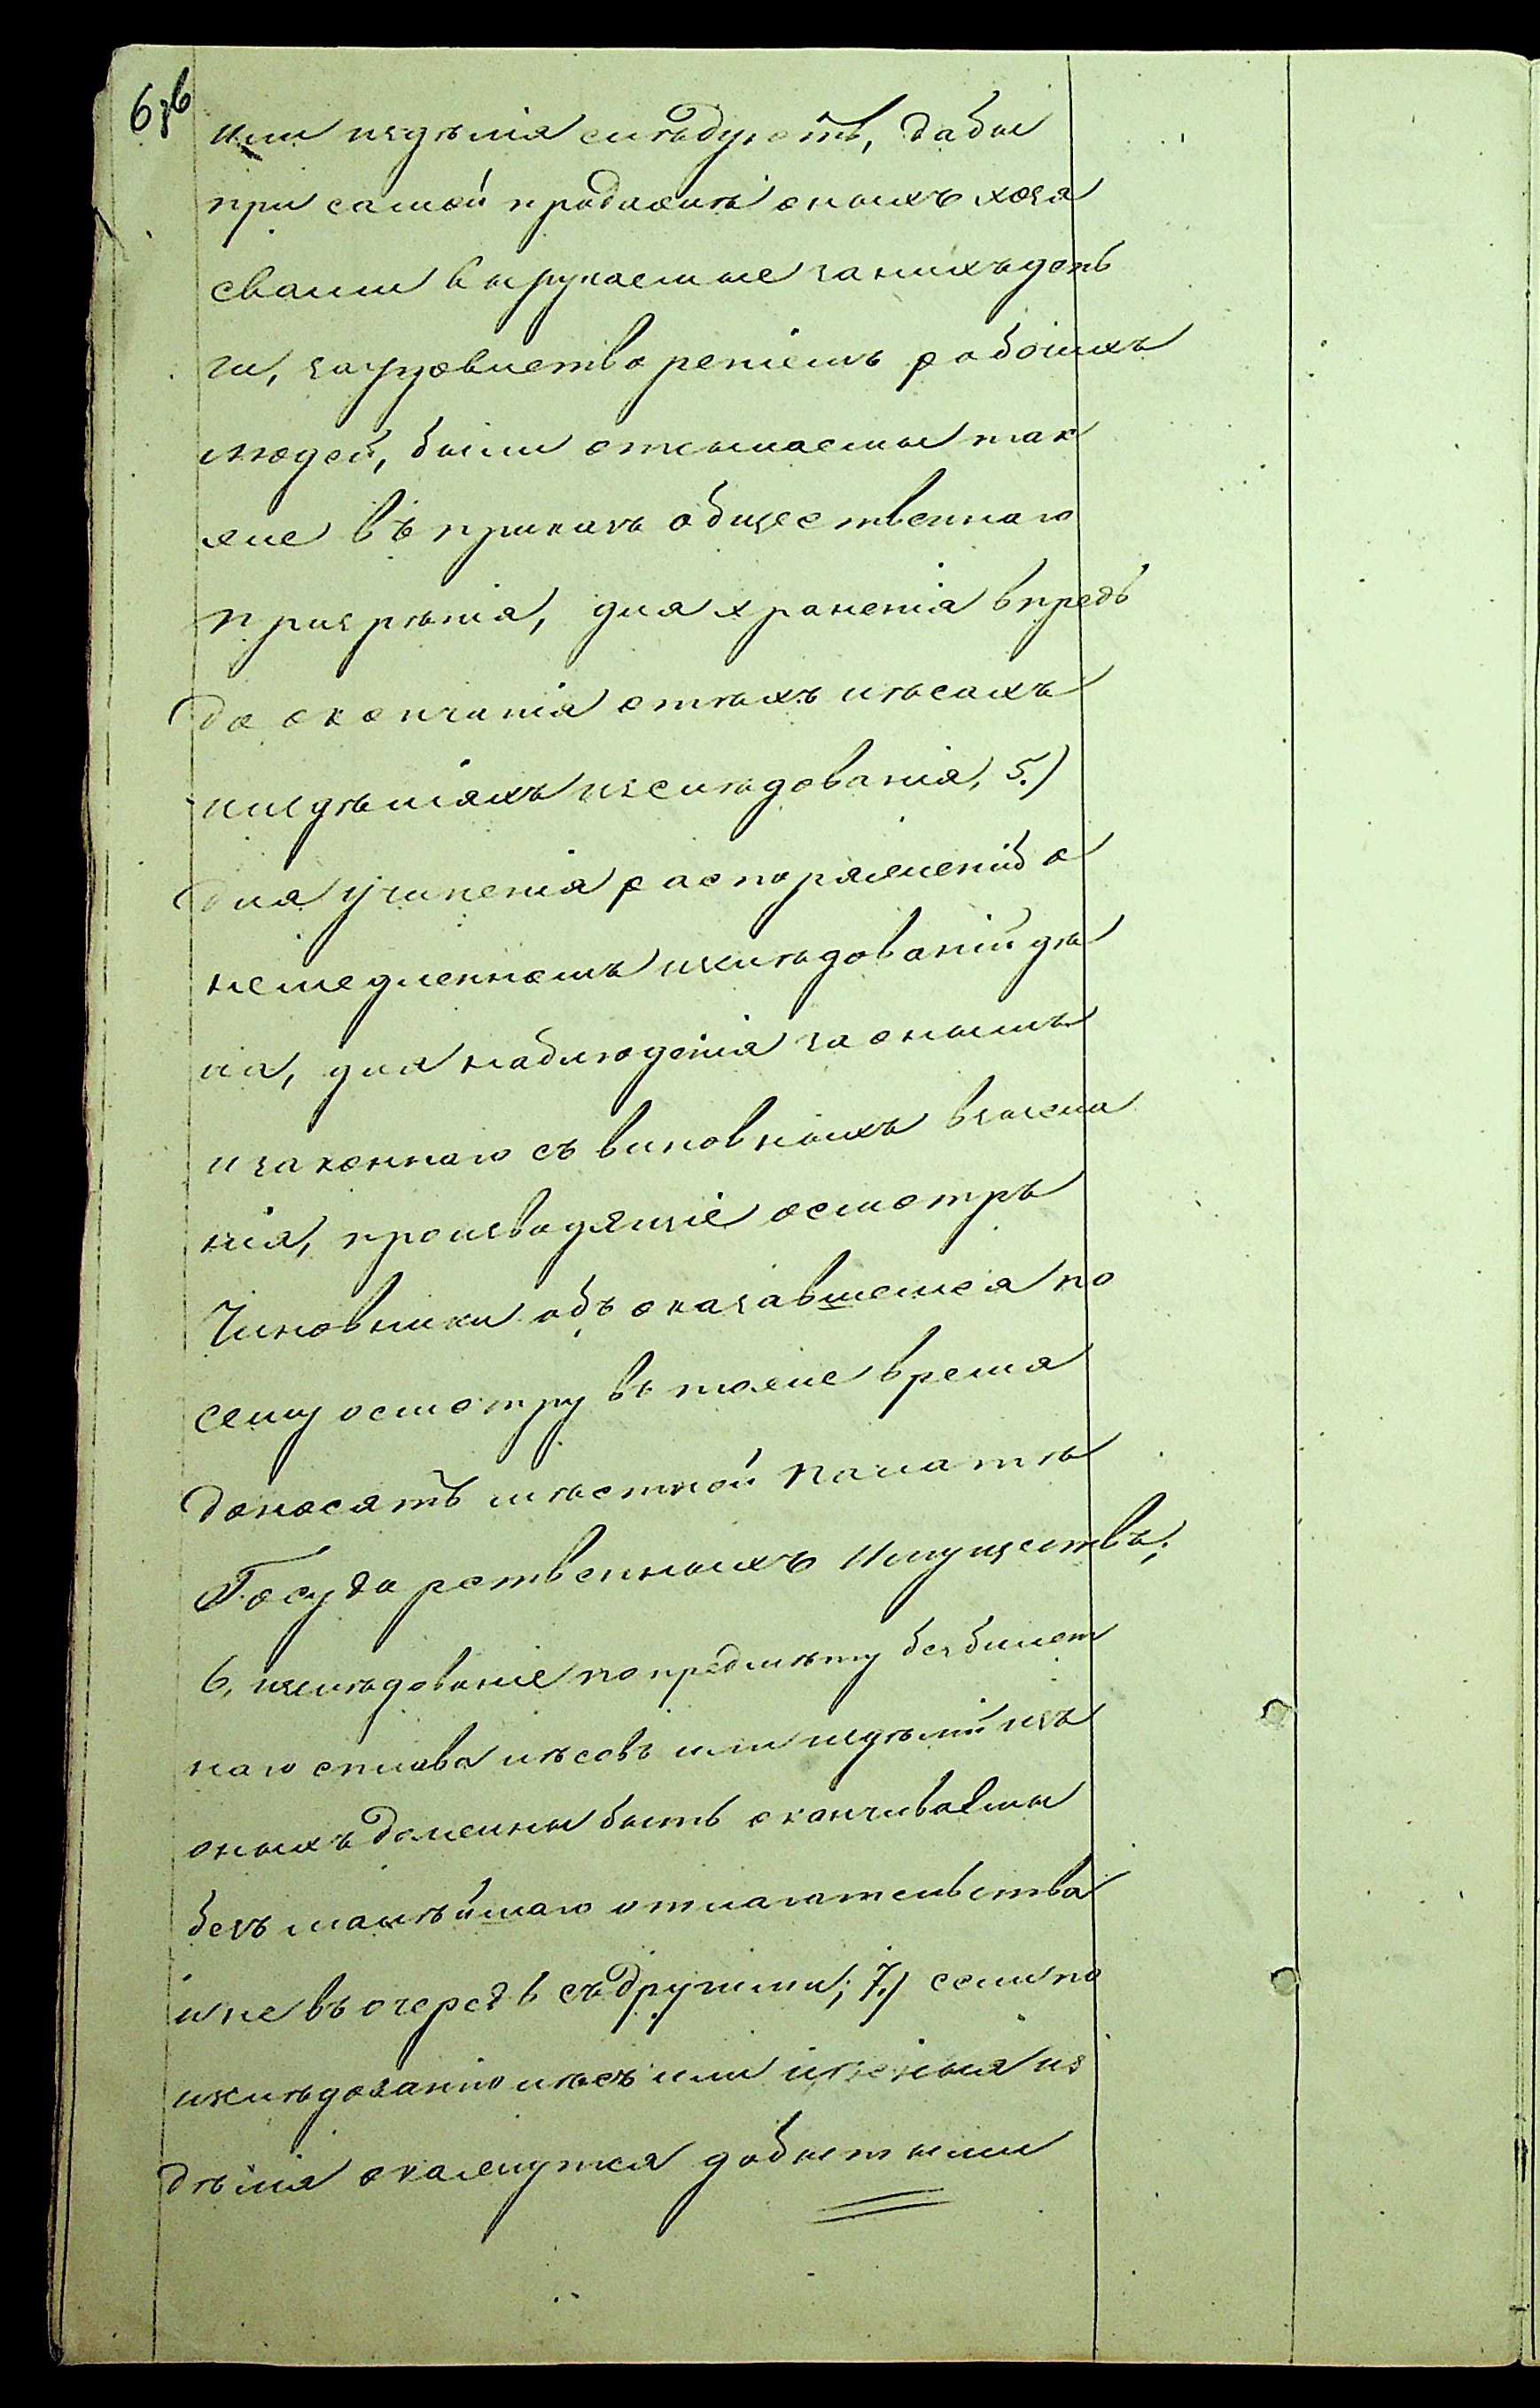 656
или издѣлiя слѣдуетъ, дабы
при самой продажѣ оныхъ хозя
евами выручаемые за нихъ день
ги, за удовлетворенiемъ рабочихъ
людей, были отсылаемы так
же въ приказъ общественнаго
призрѣнiя, для храненiя впредь
до окончанiя о тѣхъ лѣсахъ
и издѣлiяхъ изслѣдованiя, 5.)
для учиненiя распоряженiй о
немедленномъ изслѣдованiй дѣ
ла, для наблюденiя за онымъ
и законнаго съ виновныхъ взыска
нiя, производящiе осмотръ
Чиновники объ оказавшемся по
сему осмотру въ тоже время
доносятъ мѣстной Палатѣ
Государственныхъ Имуществъ;
6, изслѣдованiе по предмѣту безбилет
наго сплава лѣсовъ или издѣлiй изъ
оныхъ должны быть оканчиваемы
безъ малѣйшаго отлагательства
и не въ очередь съ другими; 7.) если по
изслѣдованiю лѣсъ или лѣсныя из
дѣлiя окажутся добытыми